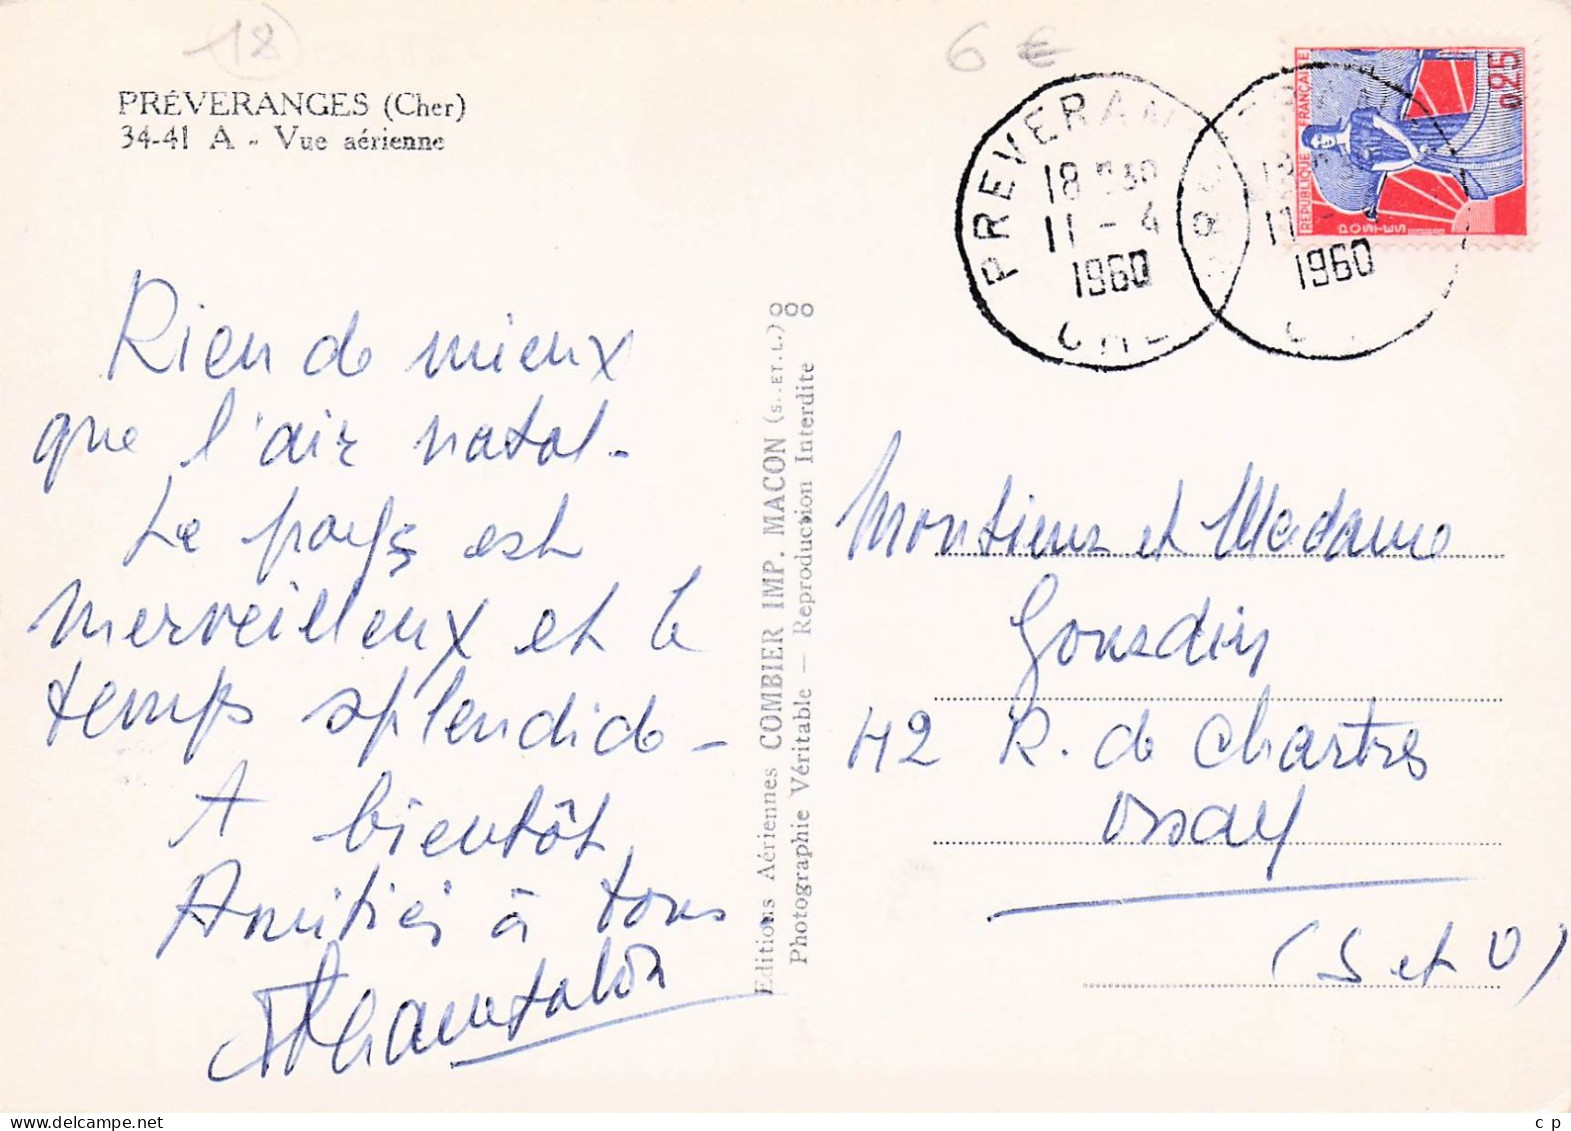 18
6 €
PRÉVERANGES (Cher)
34-41 A - Vue aérienne
Rien de mieux
que l'air natal -
Le pays est
merveilleux et le
temps splendide -
A bientôt,
Amitiés à tous
Editions Aériennes COMBIER IMP. MACON (S.-ET-L.)
Photographie Véritable — Reproduction Interdite
PREVERAN
18 30
11 - 4
1960
CHE
11
1960
REPUBLIQUE FRANÇAISE
0,25
POSTES
Monsieur et Madame
Gousdin
42 R. de Chartres
Orsay
(S et O)
c p